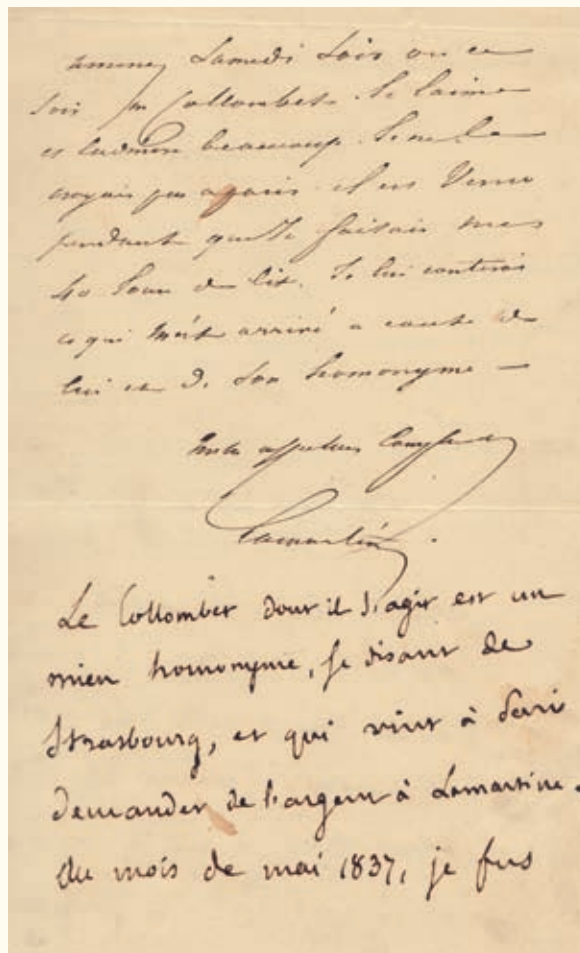 amenez Samedi soir ou ce
soir M Collombet. Je l'aime
et l'admire beaucoup. Je ne le
croyais pas à paris. il est venu
pendant que Je faisais mes
40 Jours de lit. Je lui conterai
ce qui m'est arrivé a cause de
lui et de son homonyme —
mille affectueux
Lamartine.
Le Collombet dont il s'agit est un
mien homonyme, se disant de
Strasbourg, et qui vint à Paris
demander de l'argent à Lamartine.
Au mois de mai 1837, je fus